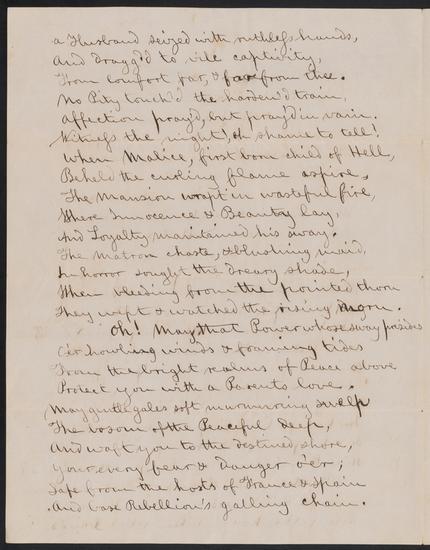 a Husband seized with ruthless hands,
And dragg'd to vile captivity,
From comfort far, & far from thee.
No Pity touch'd the harden'd train,
Affection pray'd, but pray'd in vain.
Witness the night!, oh shame to tell!
When Malice, first born child of Hell,
Beheld the curling flame aspire,
The Mansion wrapt in wasteful fire,
Where Innocence & Beautay lay,
And Loyalty maintained his sway.
The Matron chaste, & blushing maid,
In horror sought the dreary shade,
When bleeding from the pointed thorn
They wept & watched the rising morn.
Oh! May that Power whose sway presides
O'er howling winds & foaming tides
From the bright realms of Peace above
Protect you with a Parents love.
May gentle gales soft murmuring swell
The bosom of the Peaceful deep,
And waft you to the destined shore,
Your every fear & danger o'er;
Safe from the hosts of France & Spain
And base Rebellion's galling chain.